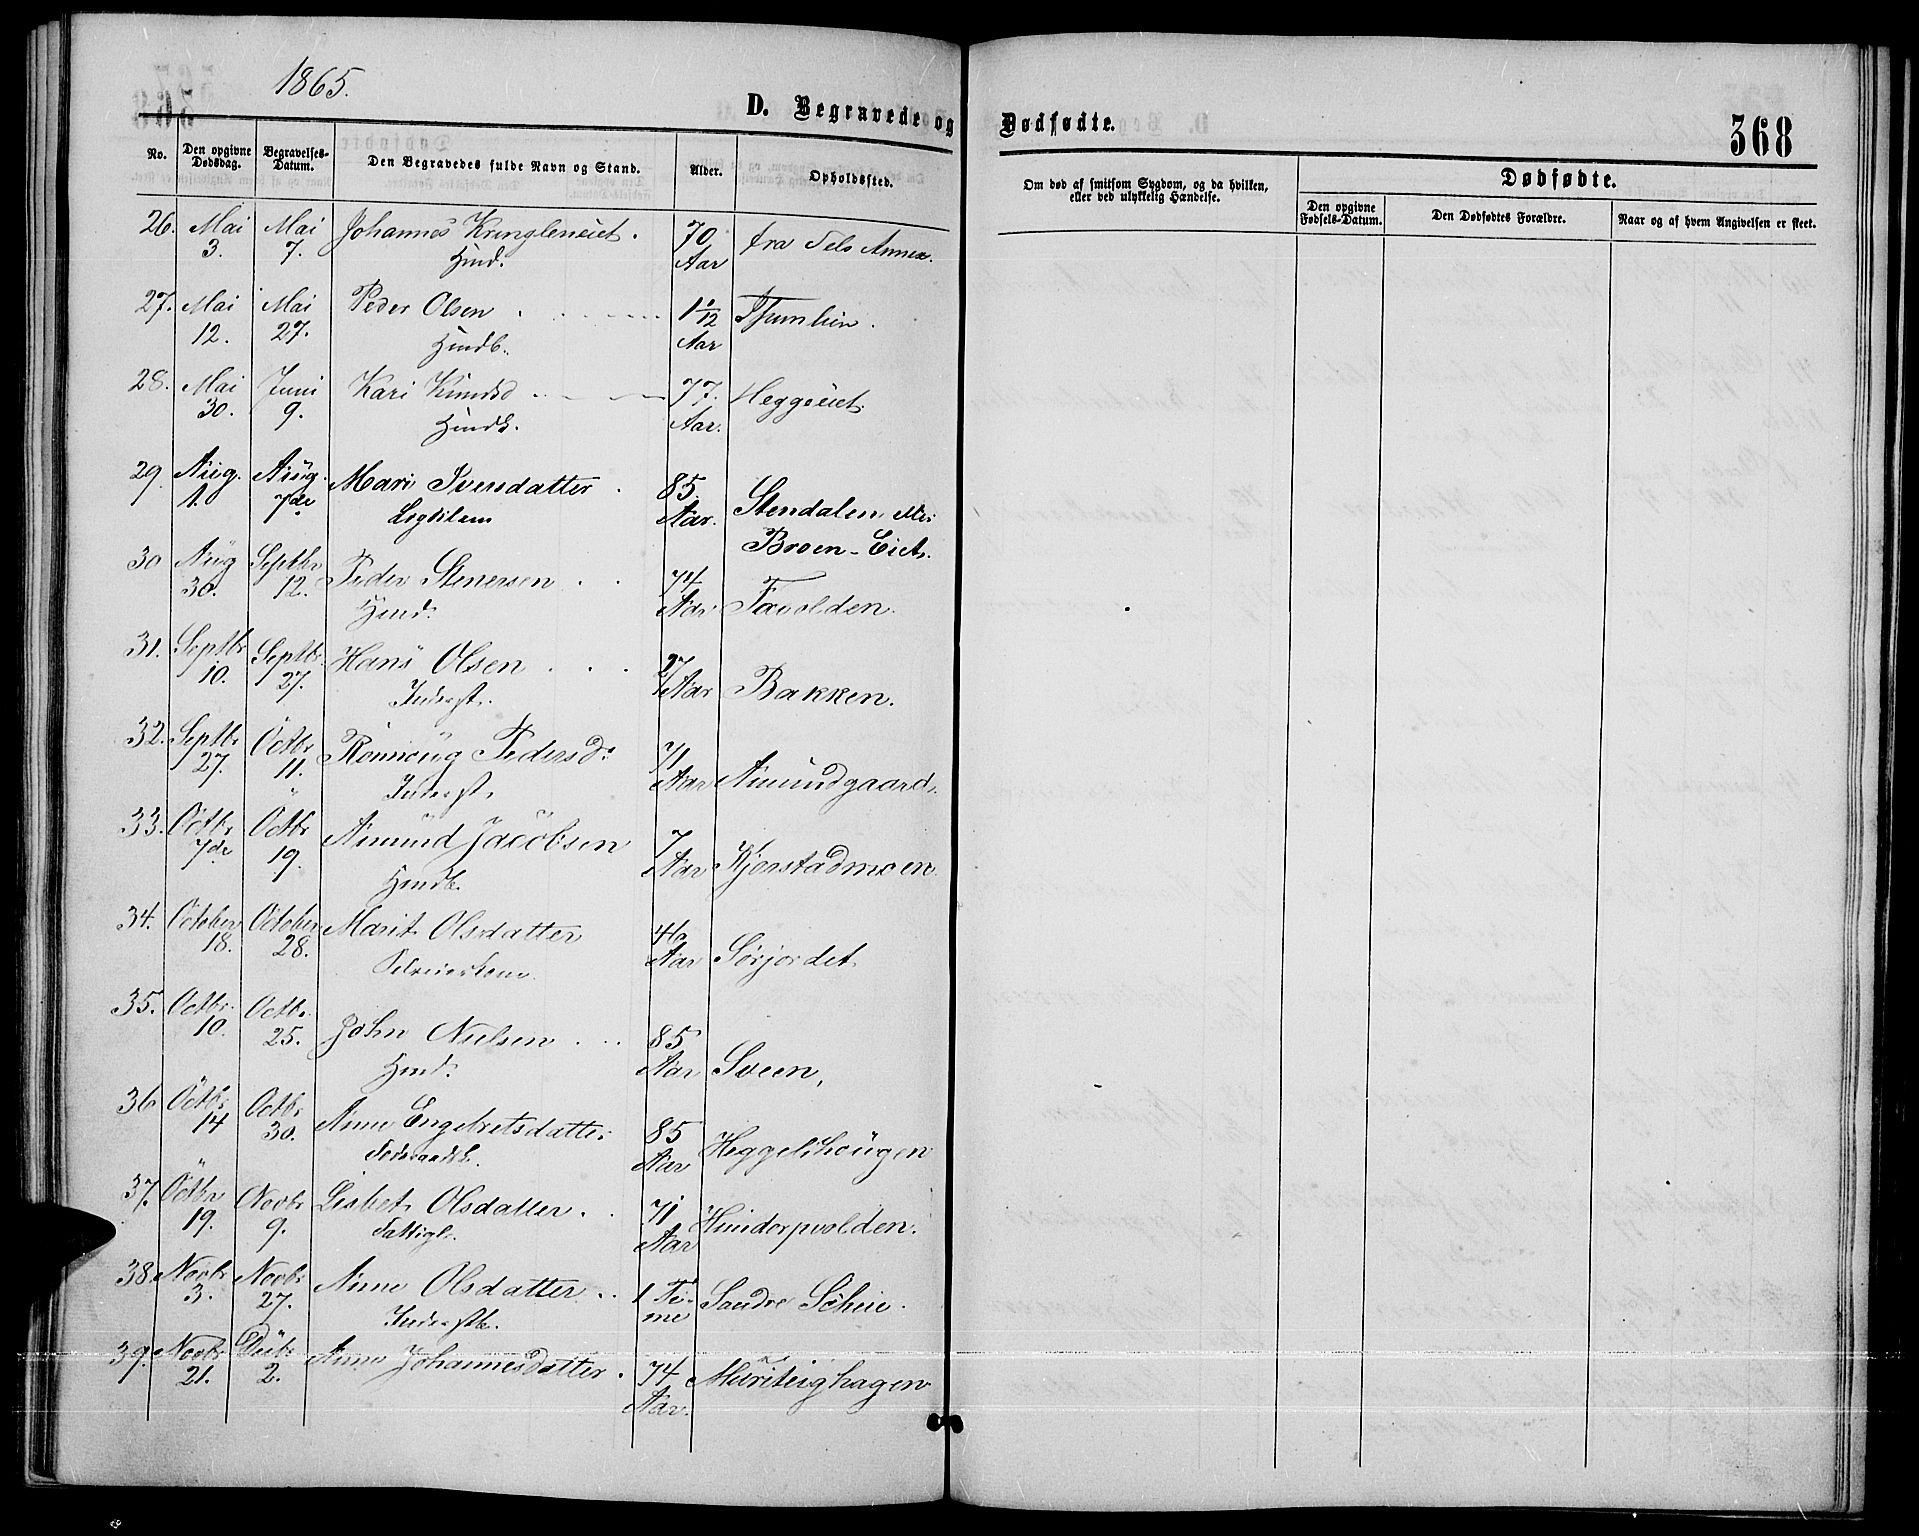 1865.
D. Begravede og Dødfødte.
368
No.
Den opgivne Dødsdag.
Begravelses-Datum.
Den Begravedes fulde Navn og Stand.
Alder.
Opholdssted.
Om død af smitsom Sygdom, og da hvilken, eller ved ulykkelig Hændelse.
Dødfødte.
Den opgivne Fødsels-Datum.
Den Dødfødtes Forældre.
Naar og af hvem Angivelsen er skeet.
26. Mai Mai Johannes Kringleneiet. 70 fra Fels Annex.
3. 7. Hmd. Aar
27. Mai Mai Peder Olsen 1 1/12
12. 27. Hmdb. Aar
28. Mai Juni Kari Knudsd 77. Heggeeiet.
30. 9. Aar.
29. Aug. Aug. Mari Iversdatter. 85. Stendalen
1. 7de Legdslem Aar. Broen-Eiet.
30 Aug Septbr Peder Stenersen 74
30. 12. Hmd. Aar
31. Septbr Septbr Hans Olsen 27 Bakken.
10. 27. Inderst. Aar
32. Septbr Octbr Rønnoug Pedersd. 71 Amundgaard.
27. 11. Inderst. Aar
33. Octbr Octbr Amund Jacobsen 7 Kjorstadmoen
7de 19. Hmdb. Aar
34. October October Marit Olsdatter 40 Sørjordet
18. 28. Selveierkone Aar
35. Octbr. Octbr. John Nielsen 85 Sveen,
10. 25. Hmd. Aar
36 Octbr. Octbr Anne Engebretsdatter 85 Heggelihougen
14 30. Føderaadsk. Aar
37. Octbr Novbr Lisbet Olsdatter. 71 Hundorpvolden.
19. 9. Fattigl. Aar
38. Novbr Novbr Anne Olsdatter 1 Ti- Søndre Scheie.
3. 27. Inderstb. me
39. Novbr Decbr Anne Johannesdatter. 74
21. 2. Aar.